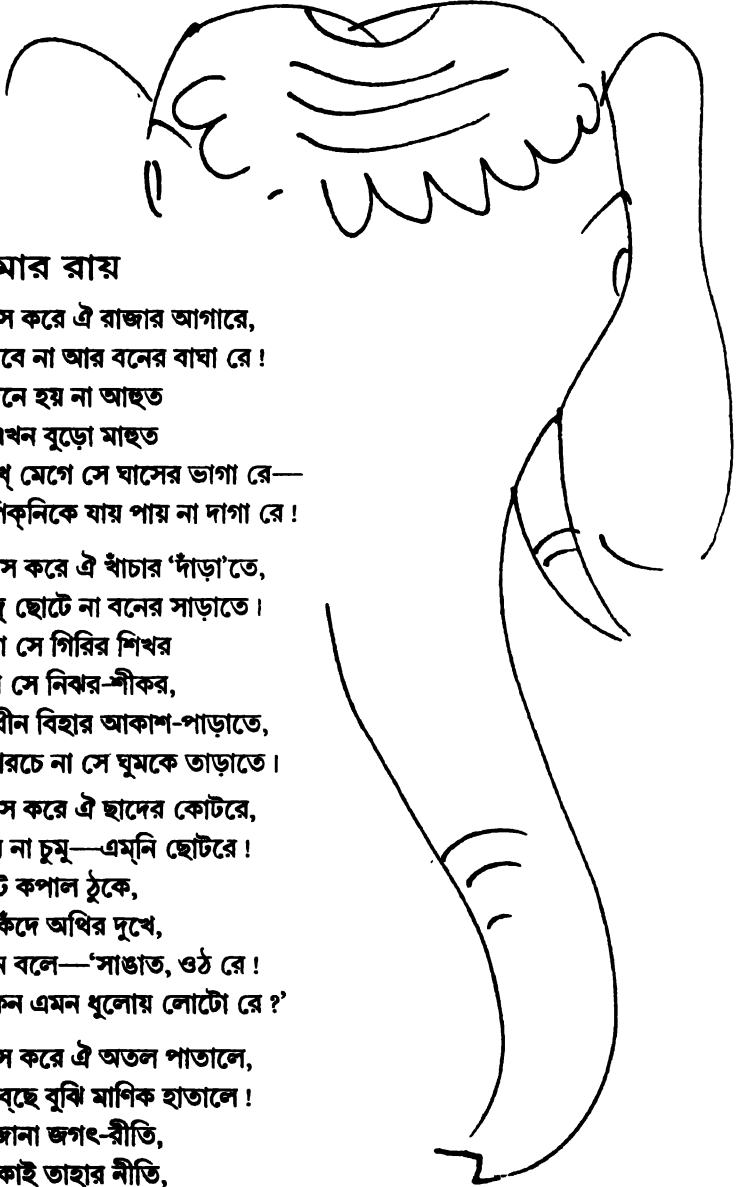 রায়
করে ঐ রাজার আগারে,
না আর বনের বাঘা রে!
হয় না আহুত
এখন বুড়ো মাহুত
মেগে সে ঘাসের ভাগা রে—
যায় পায় না দাগা রে!
করে ঐ খাঁচার ‘দাঁড়া’তে,
ছোটে না বনের সাড়াতে।
সে গিরির শিখর
সে নিঝর-শীকর,
বিহার আকাশ-পাড়াতে,
না সে ঘুমকে তাড়াতে।
করে ঐ ছাদের কোটরে,
না চুমু—এম্‌নি ছোটরে!
কপাল ঠুকে,
অথির দুখে,
বলে—‘সাঙাত, ওঠ রে!
এমন ধূলোয় লোটো রে?’
করে ঐ অতল পাতালে,
বুঝি মাণিক হাতালে!
জগৎ-রীতি,
তাহার নীতি,